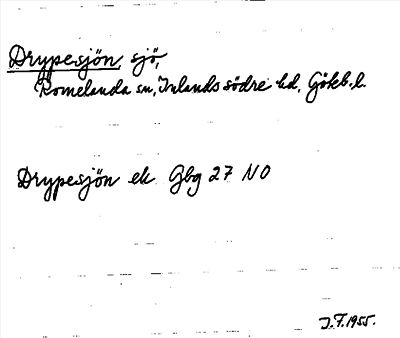 Drypesjön, sjö,
Romelanda sn, Inlands södre hd, Götkb. l.
Drypesjön ek Gbg 27 NO
J.F. 1955.